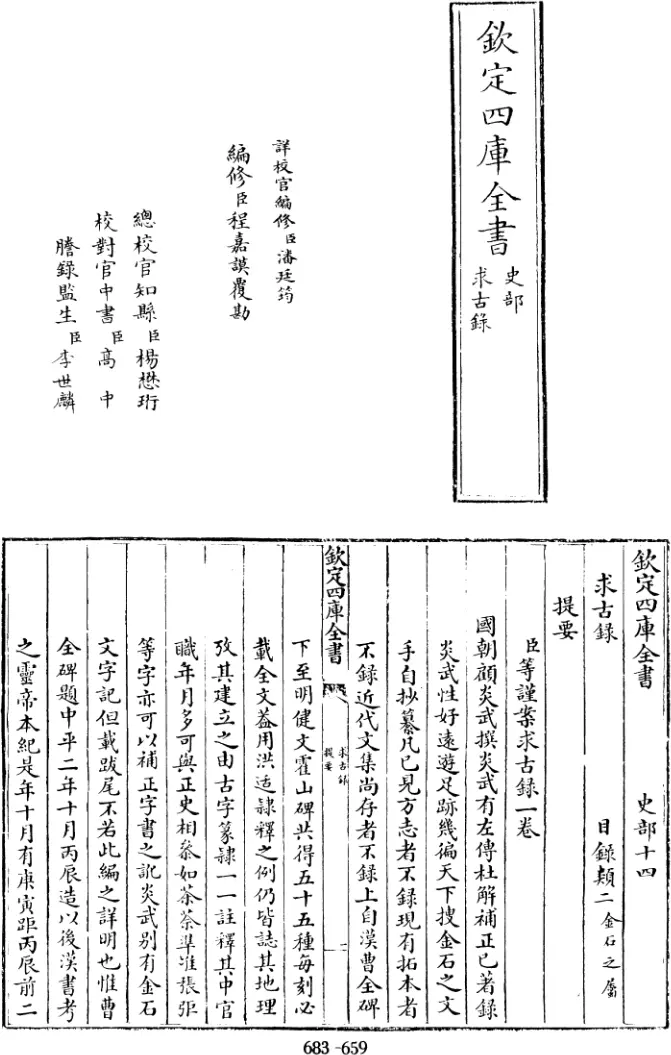 欽定四庫全書
史部
求古錄
詳校官編修臣潘廷筠
編修臣程嘉謨覆勘
總校官知縣臣楊懋珩
校對官中書臣高中
謄錄監生臣李世麟
欽定四庫全書
史部十四
求古錄
目錄類二金石之屬
提要
臣等謹案求古錄一卷
國朝顧炎武撰炎武有左傳杜解補正已著錄
炎武性好遠遊足跡幾徧天下搜金石之文
手自抄纂凡已見方志者不錄現有拓本者
不錄近代文集尚存者不錄上自漢曹全碑
欽定四庫全書
求古錄
提要
一
下至明健文霍山碑共得五十五種每刻必
載全文葢用洪适隷釋之例仍皆誌其地理
攷其建立之由古字篆隷一一註釋其中官
職年月多可與正史相叅如荼荼準准張弡
等字亦可以補正字書之訛炎武别有金石
文字記但載跋尾不若此編之詳明也惟曹
全碑題中平二年十月丙辰造以後漢書考
之靈帝本紀是年十月有庚寅距丙辰前二
683-659